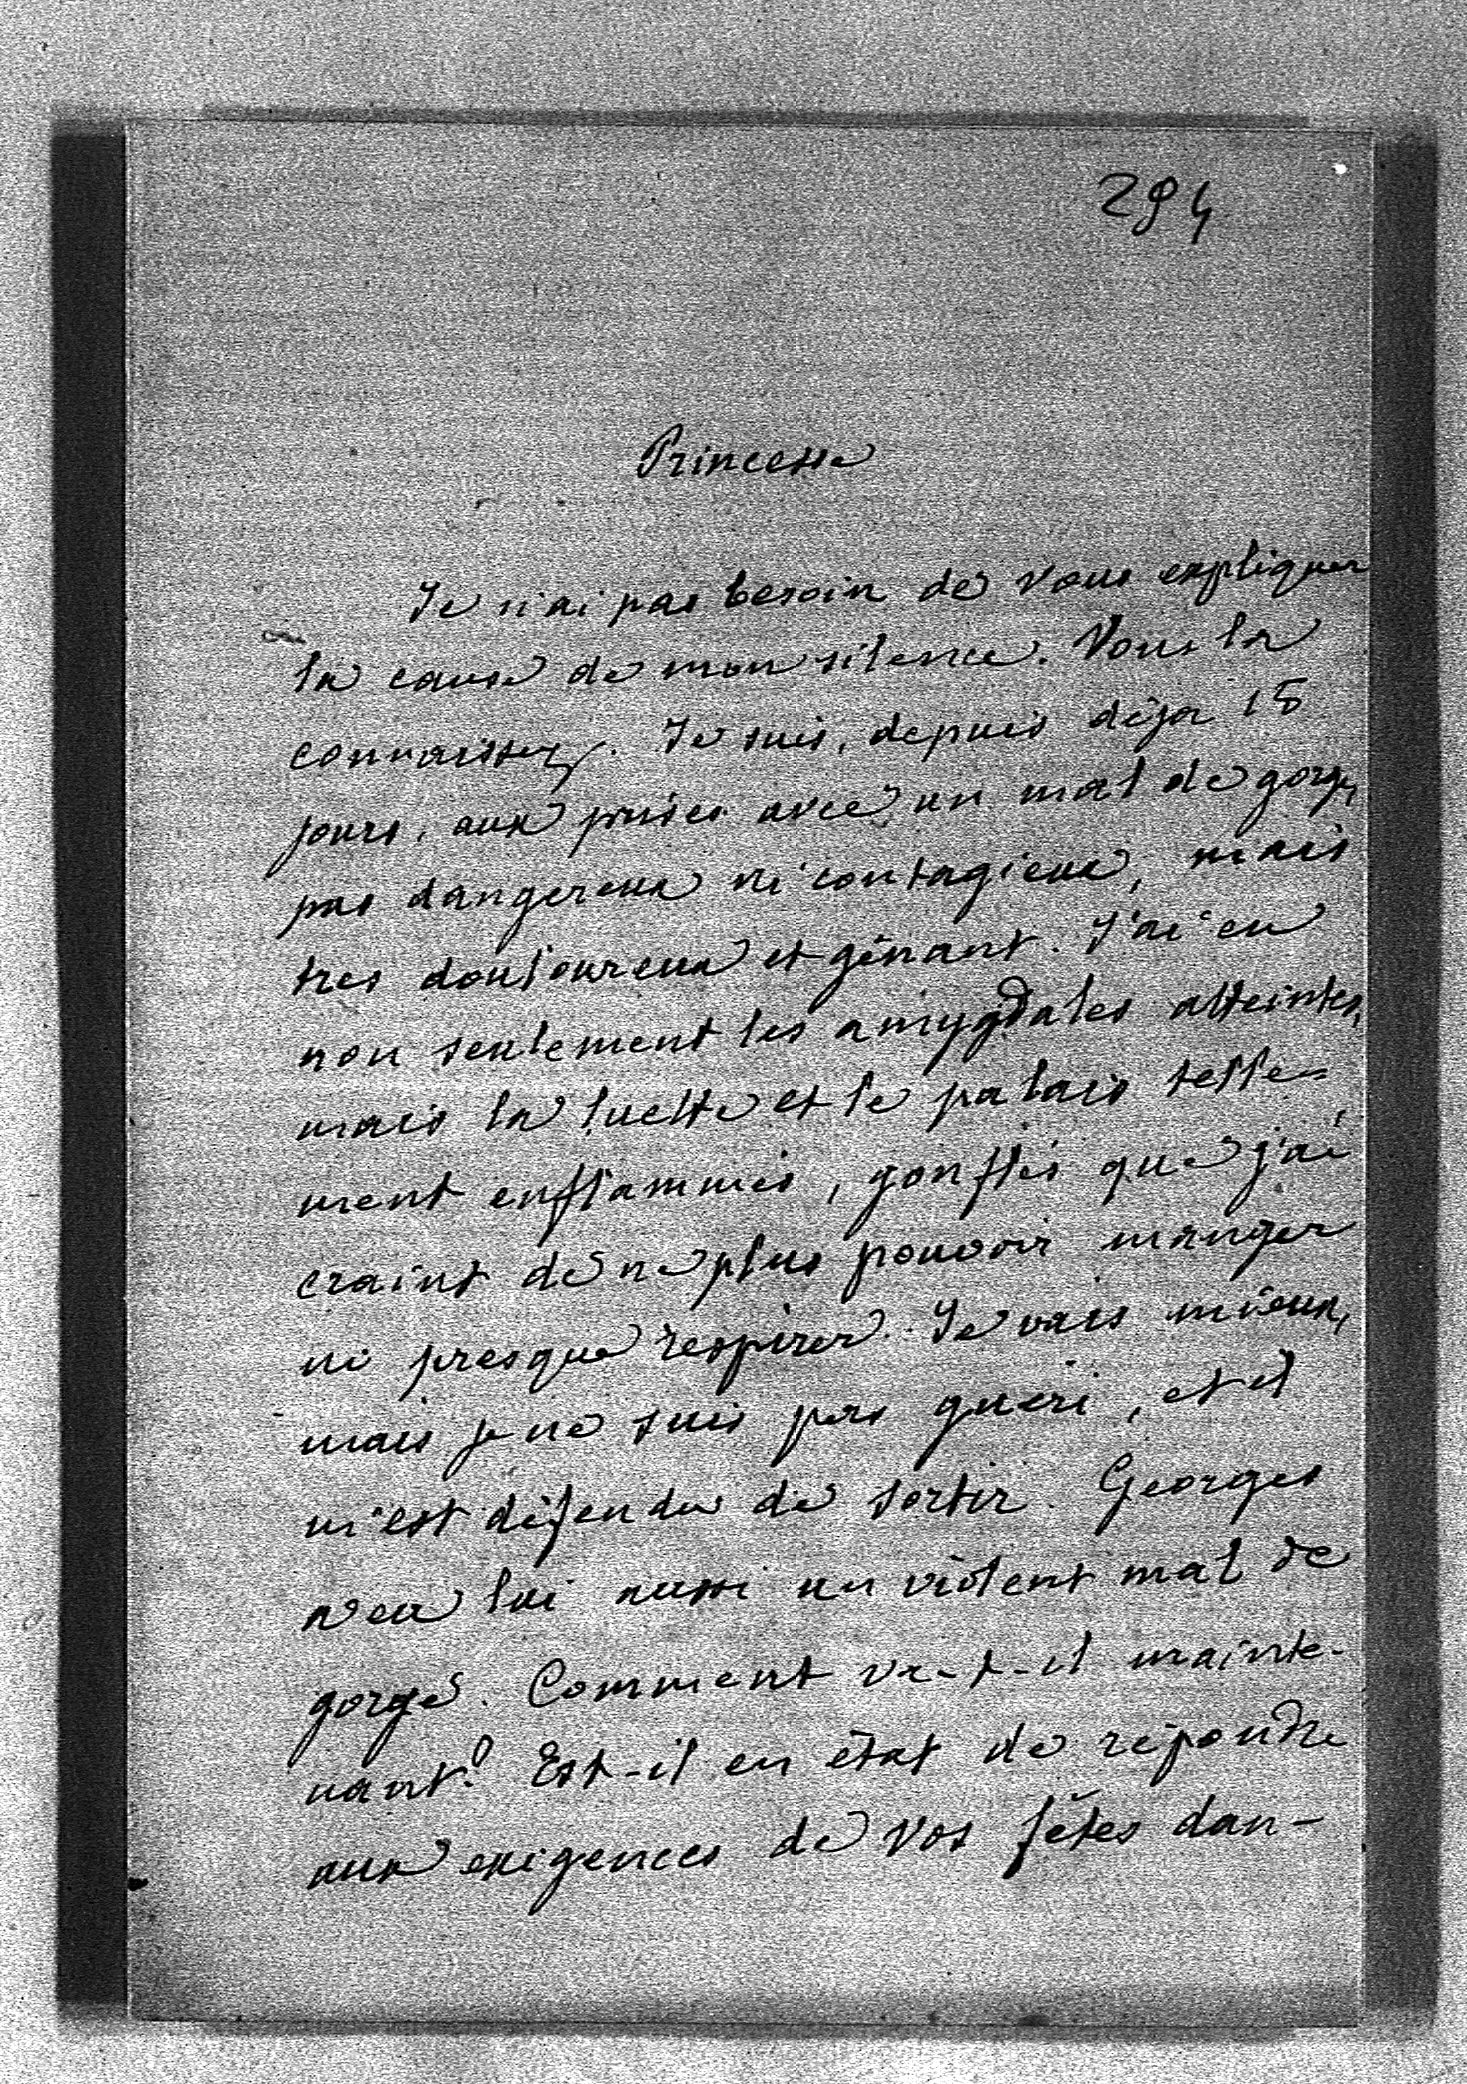 294
Princesse
Je n'ai pas besoin de vous expliquer
la cause de mon silence. Vous la
connaissez. Je suis, depuis déja 15
jours, aux prises avec un mal de gorge,
pas dangereux ni contagieux, mais
tres douloureux et gênant. J'ai eu
non seulement les amygdales atteintes,
mais la luette et le palais telle-
ment enflammés, gonflés que j'ai
craint de ne plus pouvoir manger
ni presque respirer. Je vais mieux,
mais je ne suis pas guéri, et il
m'est défendu de sortir. Georges
a eu lui aussi un violent mal de
gorge. Comment va-t-il mainte-
nant? Est-il en état de répondre
aux exigences de vos fêtes dan-